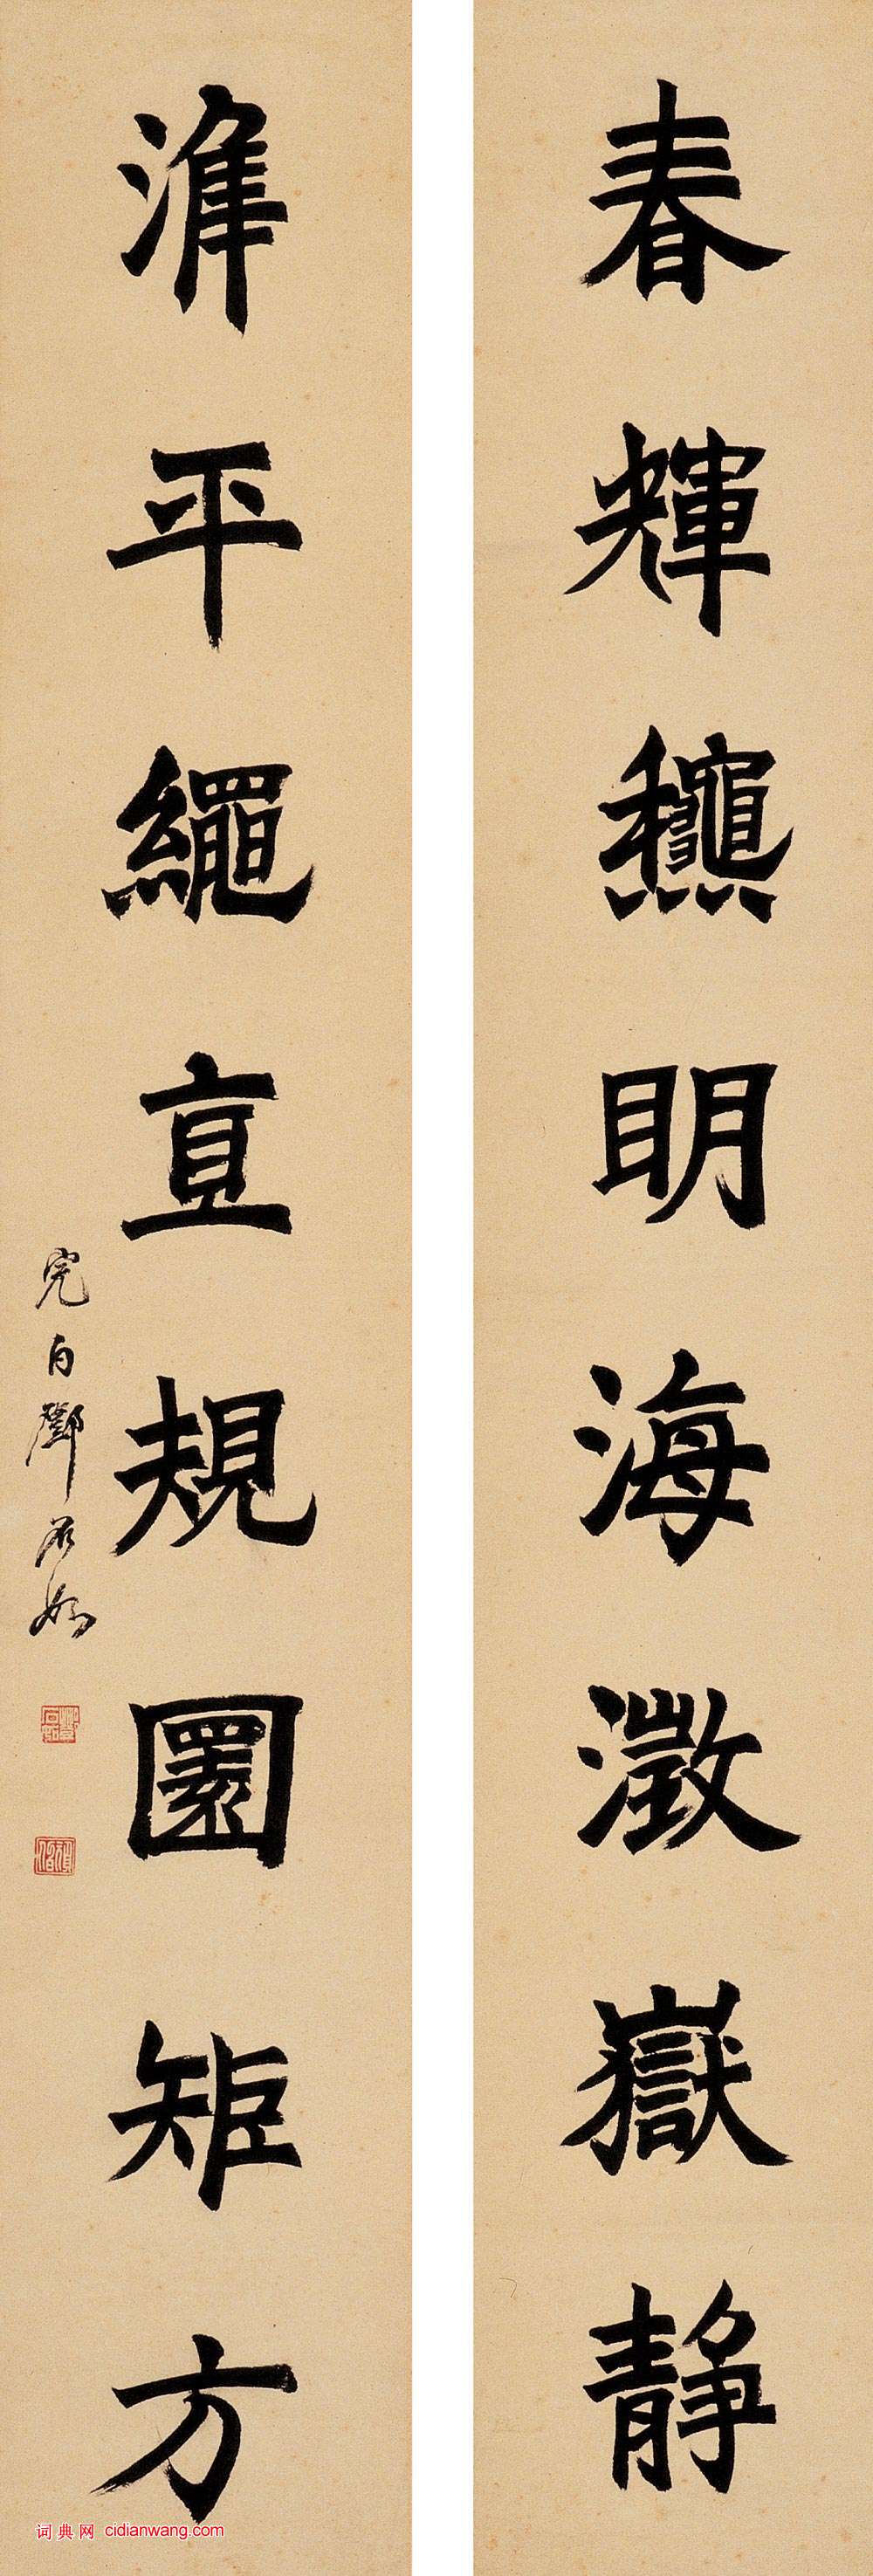 春輝𪛁明海澂嶽静
準平繩直規圜矩方
完白鄧石如
鄧石如
頑伯
词典网 cidianwang.com